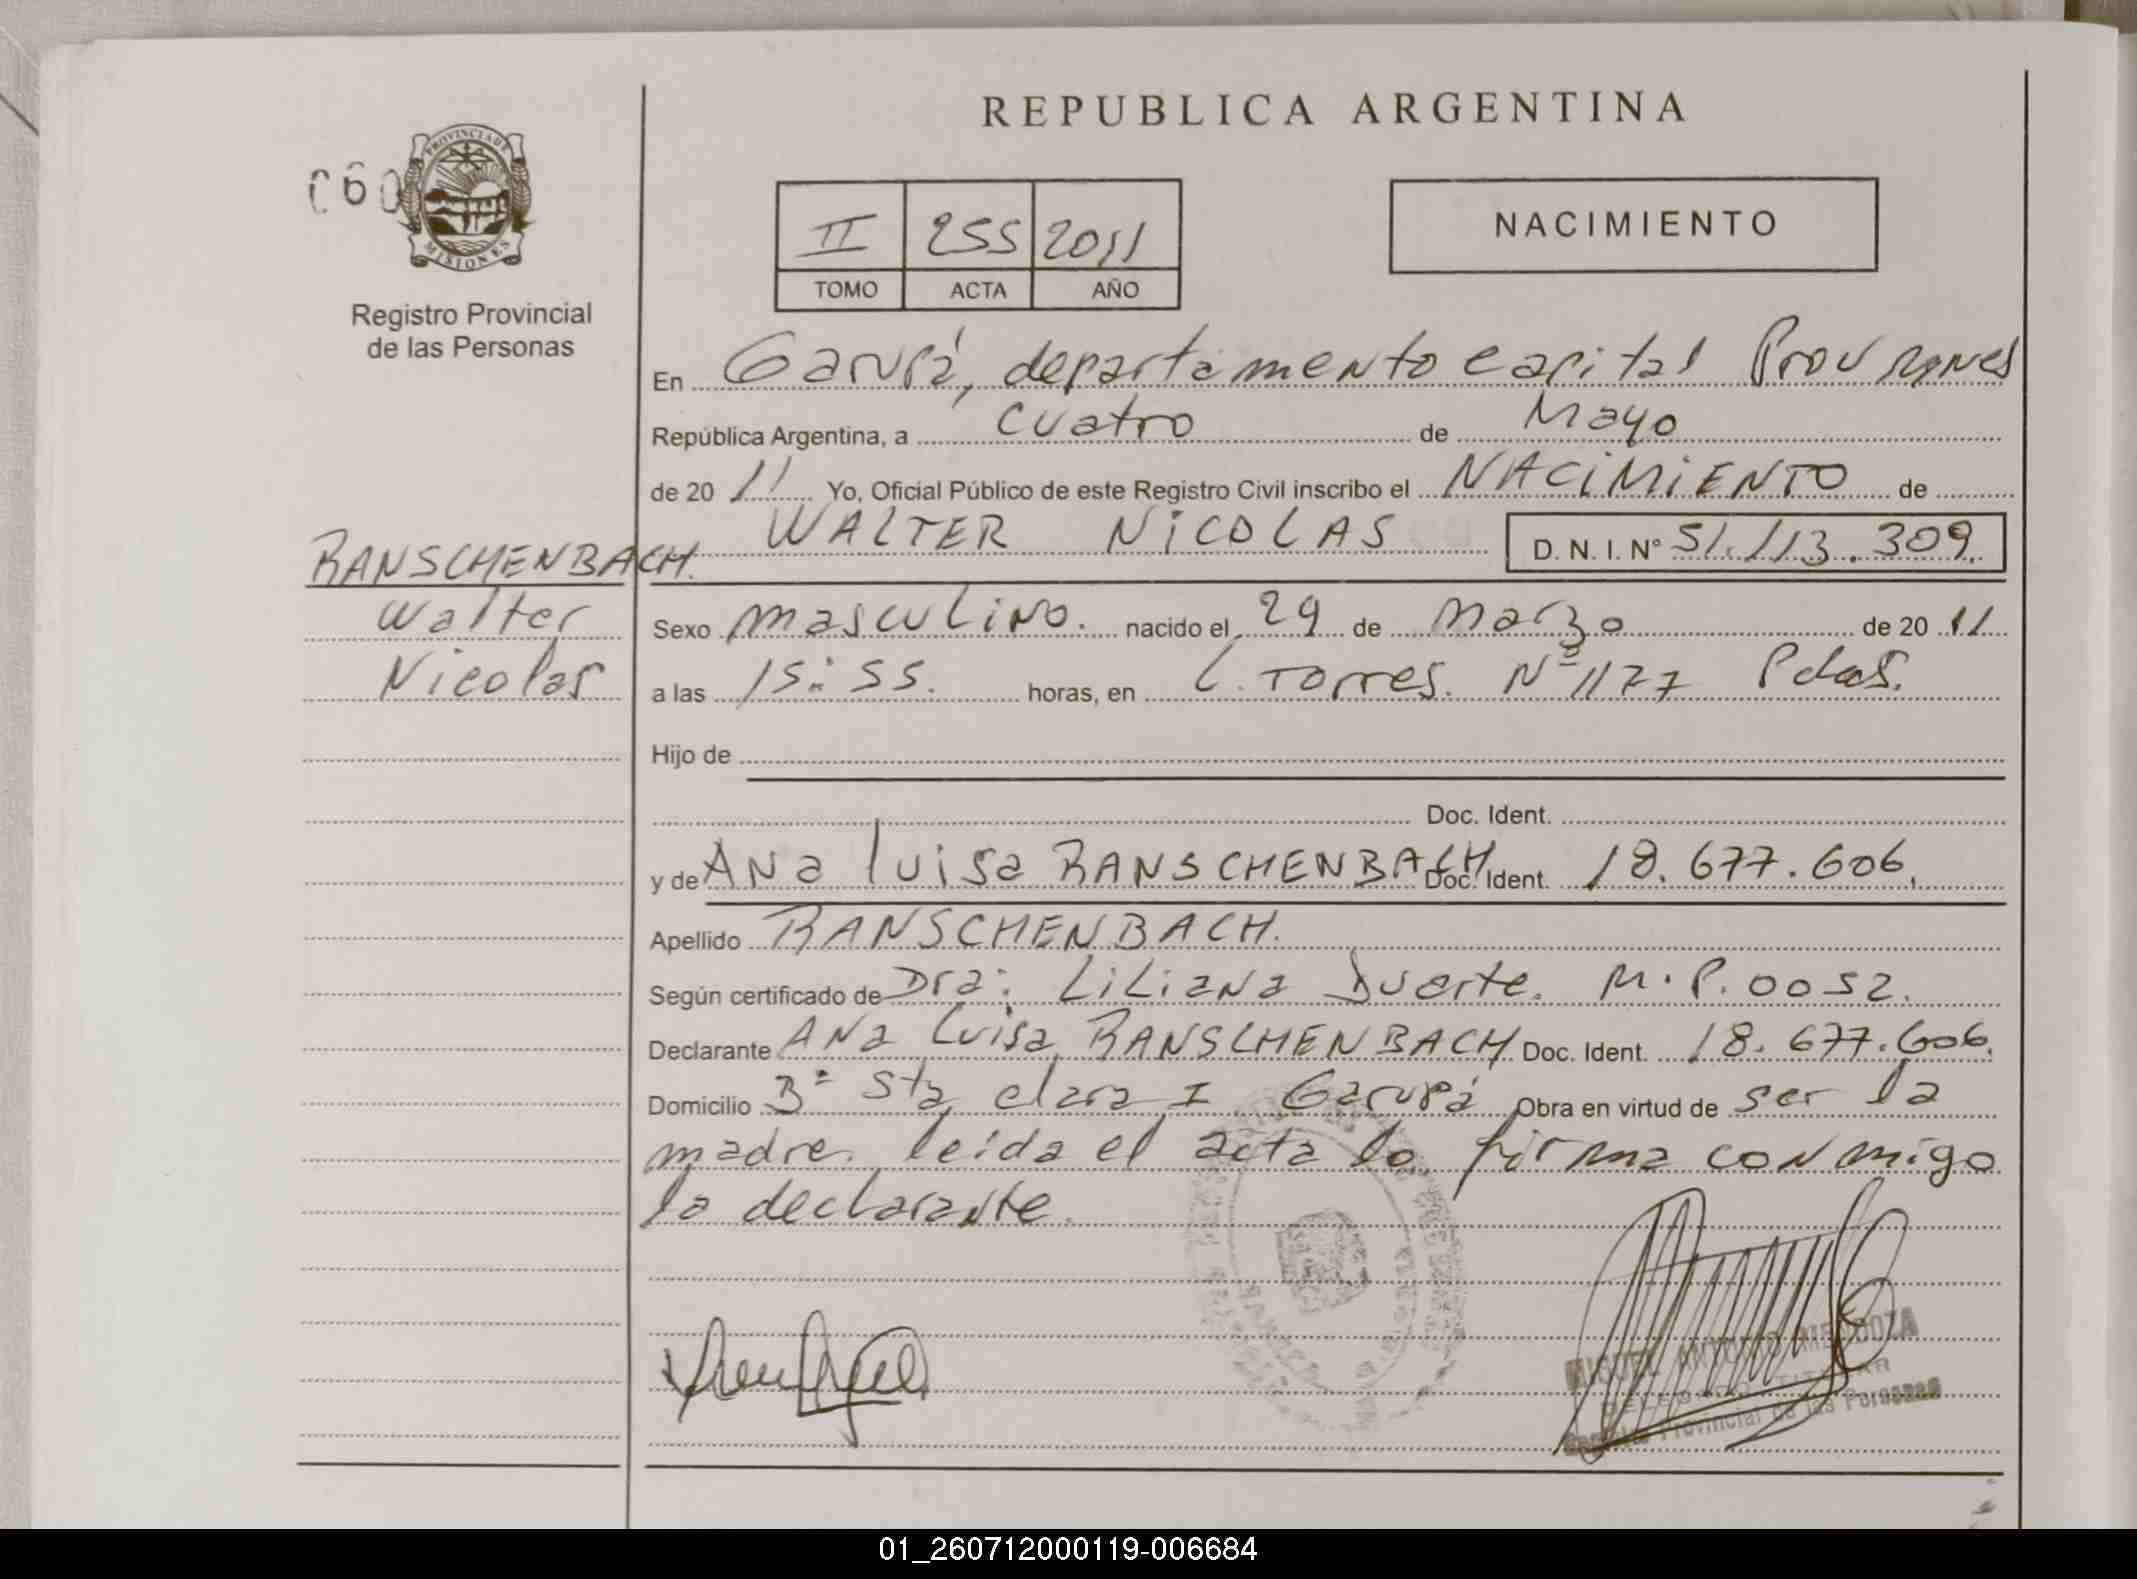 REPUBLICA ARGENTINA
060
PROVINCIA DE MISIONES
Registro Provincial
de las Personas
II 255 2011
TOMO ACTA AÑO
NACIMIENTO
En Garupá, departamento capital Prov
República Argentina, a cuatro de Mayo
de 20 11 Yo, Oficial Público de este Registro Civil inscribo el NACIMIENTO de
WALTER NICOLAS D. N. I. Nº 51.113.309.
RANSCHENBACH.
Walter
Nicolas
Sexo masculino. nacido el 29 de marzo de 20 11
a las 15:55. horas, en L. Torres. Nº 1177 Pdas.
Hijo de
Doc. Ident.
y de Ana Luisa RANSCHENBACH Doc. Ident. 18.677.606.
Apellido RANSCHENBACH.
Según certificado de Dra: Liliana Duarte. M.P. 0052.
Declarante Ana Luisa RANSCHENBACH Doc. Ident. 18.677.606.
Domicilio Bº Sta Clara I Garupá Obra en virtud de ser la
madre. leida el acta lo firma conmigo
la declarante.
MIGUEL ANTONIO MENDOZA
DELEGADO TITULAR
Registro Provincial de las Personas
01_260712000119-006684